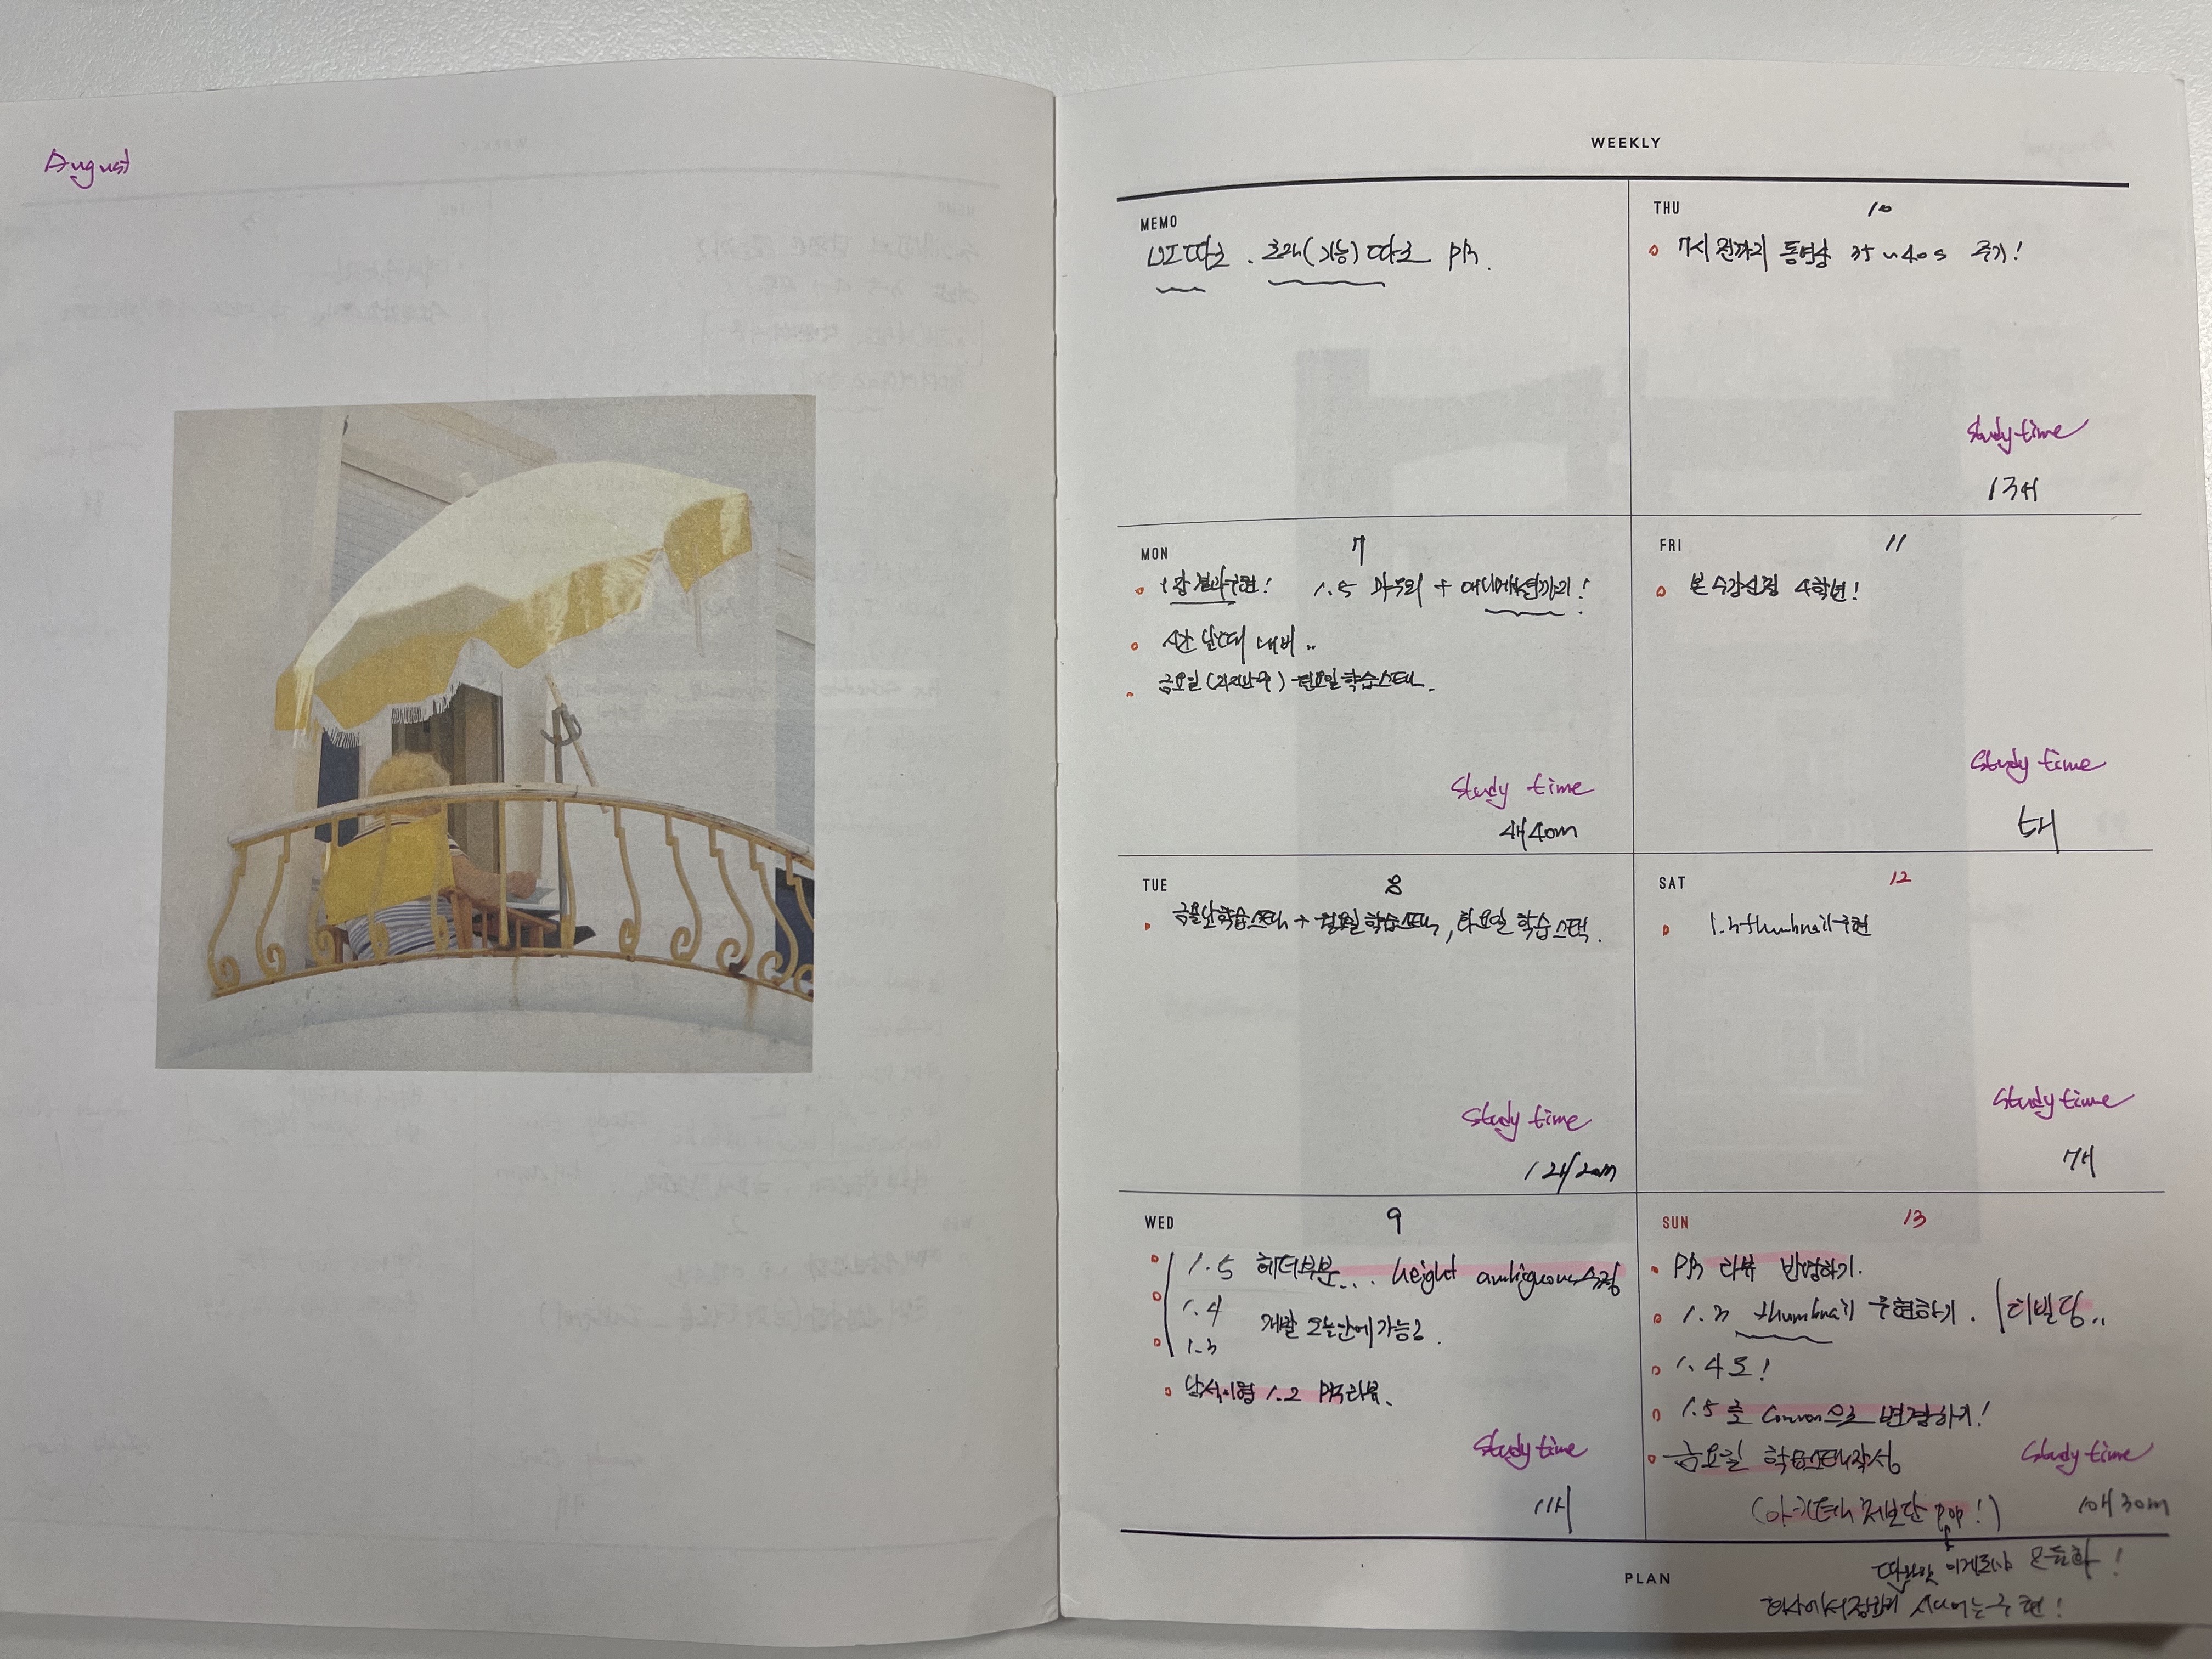 August
WEEKLY
MEMO
UI 따로. 로직(기능) 따로 PR.
MON 7
1장 결과구현! 1.5 마무리 + 애니메이션까지!
시간 날때 대비..
금요일 (지난주) 월요일 학습스택.
Study time
4H 40m
TUE 8
금요일 학습스택 + 월요일 학습스택, 화요일 학습스택.
Study time
12H 20m
WED 9
1.5 헤더부분... height ambiguous 수정
1.4
개발 오늘안에 가능?
1.3
1.2 PR 리뷰.
Study time
11H
THU 10
7시 전까지 동영상 35~40s 주기!
Study time
13H
FRI 11
본 수강신청 4학년!
Study time
SAT 12
1.3 thumbnail 구현
Study time
7H
SUN 13
PR 리뷰 반영하기.
1.3 thumbnail 구현하기. 티빌딩..
1.4도!
1.5 으로 변경하기!
금요일 학습스택작성
Study time
(아키텍처 제보단 pop!)
10H 30m
PLAN
모듈화!
구현!